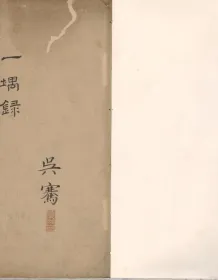 一堣録
吳騫